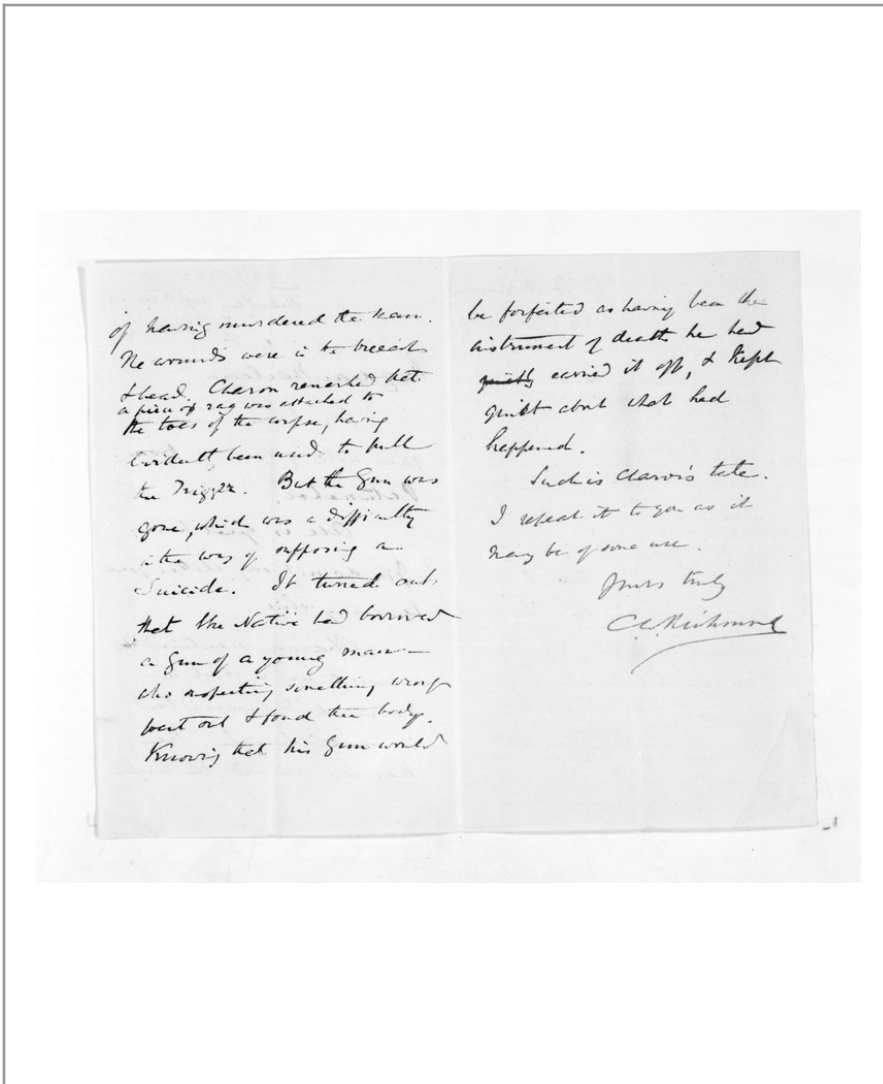 of having murdered the man.
The wounds were in the breast
& head. Charon remarked that
a piece of rag was attached to
the toes of the corpse, having
evidently been used to pull
the Trigger. But the Gun was
gone, which was a difficulty
in the way of supposing a
Suicide. It turned out
that the Native had borrowed
a Gun of a young man
who suspecting something wrong
went out & found the body.
Knowing that his Gun would
be forfeited as having been the
instrument of death he had
quietly carried it off, & kept
quiet about what had
happened.
Such is tale.
I repeat it to you as it
may be of some use.
Yours truly
C W Richmond